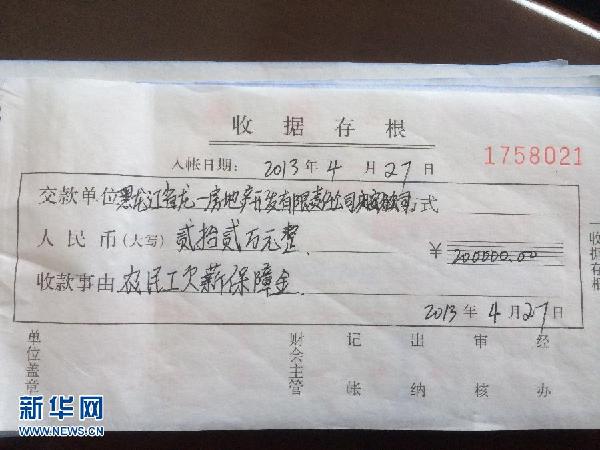 收据存根
入帐日期： 2013年4月27日
1758021
交款单位 黑龙江省龙一房地产开发有限责任公司 式
人民币(大写) 贰拾贰万元整
￥ 200000.00
收款事由 农民工欠薪保障金
2013年4月27日
收据存根
单位盖章 财会主管 记帐 出纳 审核 经办
新华网
WWW.NEWS.CN